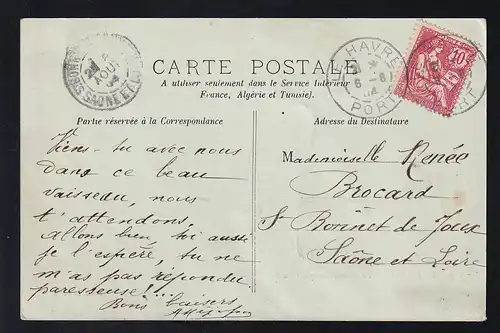 CARTE POSTALE
A utiliser seulement dans le Service Intérieur
France, Algérie et Tunisie).
Partie réservée à la Correspondance
Adresse du Destinataire
Viens-tu avec nous
dans ce beau
vaisseau, nous
t'attendons,
Allons bien, toi aussi
je l'espère, tu ne
m'as pas répondu
paresseuse!!...
Bons baisers
Mademoiselle Renée
Brocard
St Bonnet de Joux
Saône et Loire
HAVRE
PORT
AOUT
SAONE ET
10